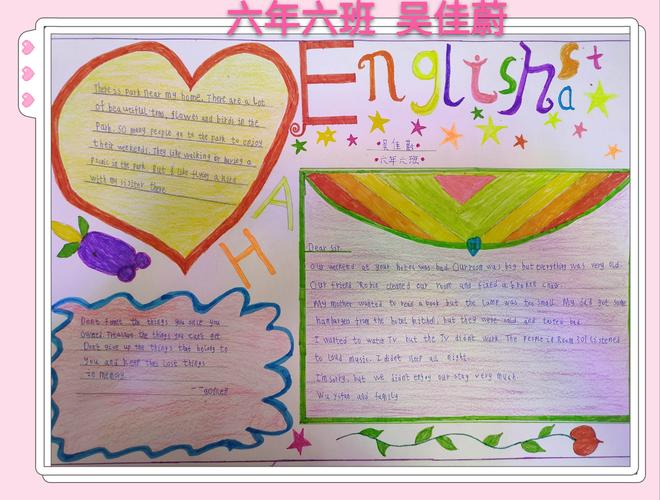 六年六班 吴佳蔚
English
吴佳蔚
六年六班
There is park near my home. There are a lot
of beauesful trees, flowes and birds in the
park. SO many people go to the park to enjoy
their weekends. They like walking or having a
picnic in the park. But I like flying a
with my sisster there
A
H
Dear Sir.
Our weekend at your hotel was bad. Our room was big but everything was very old.
Our friend Robin cleaned our room and fixed a broken chair.
My mother wanted to read a book but the lamp was too small. My dad got some
hamburgers from the hotel kitchen, but they were cold and tasted bad.
I wanted to watch TV but the TV didnt work. The people in Room 301 listened
to loud music. I didnt sleep all night.
I'm sorry, but we didnt enjoy our stay very much.
Wu Yifan and family
Don't forget the things you once you
owned. Treasure the things you can't get
Don't give up the things that belong to
you and keep thes lost things
in memory